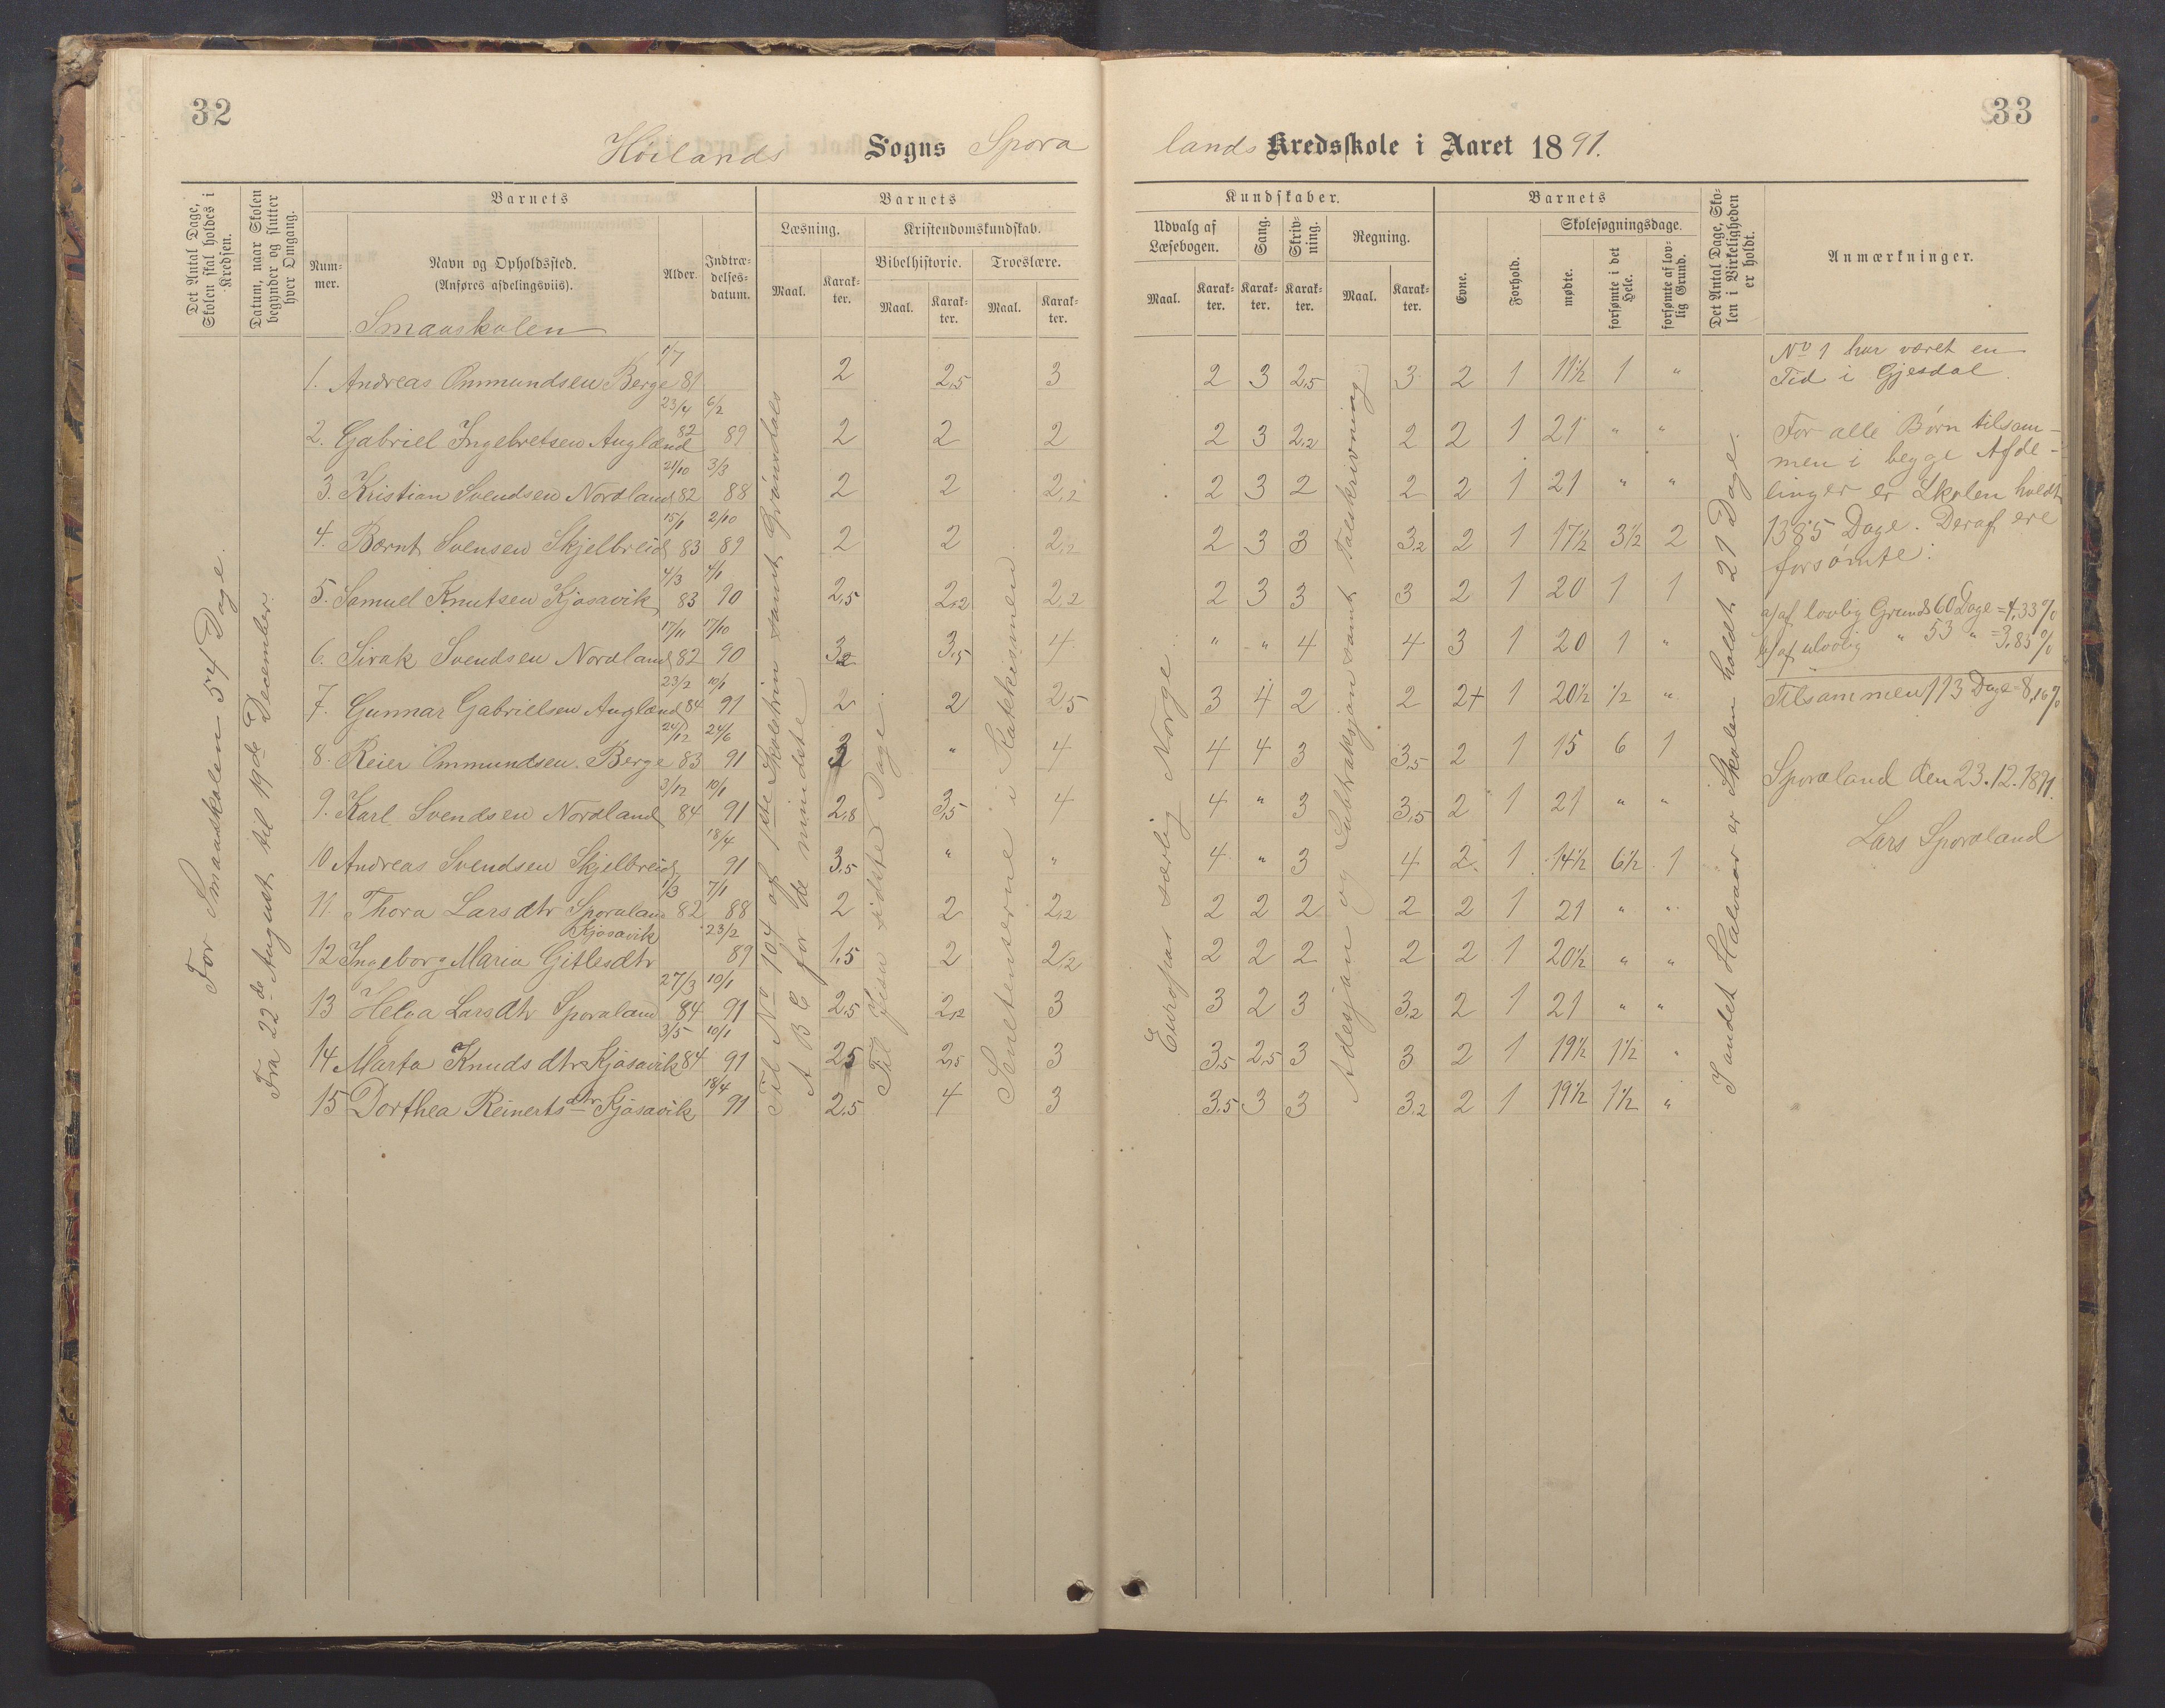 32
33
Höilands Sogns Spora
lands Kredsskole i Aaret 1891.
Det Antal Dage, Skolen skal holdes i Kredsen.
Datum, naar Skolen begynder og slutter hver Omgang.
Barnets
Num-mer.
Navn og Opholdssted.
(Anføres afdelingsviis).
Alder.
Indtræ-delses-datum.
Barnets
Læsning.
Maal.
Karak-ter.
Kristendomskundskab.
Bibelhistorie.
Maal.
Karak-ter.
Troeslære.
Maal.
Karak-ter.
Kundskaber.
Udvalg af Læsebogen.
Maal.
Karak-ter.
Sang.
Karak-ter.
Skriv-ning.
Karak-ter.
Regning.
Maal.
Karak-ter.
Barnets
Evne.
Forhold.
Skolesøgningsdage.
mødte.
forsømte i det Hele.
forsømte af lov-lig Grund.
Det Antal Dage, Sko-len i Virkeligheden er holdt.
Anmærkninger.
Smaaskolen
For Smaaskolen 54 Dage.
Fra 22de August til 19de December.
Til No 104 af 1ste Skoletrin samt Grøndals
A B C for de mindste
Til Jisu sidste Dage.
Senetenserne i Katekismen
Europas særlig Norge.
Adesjon og Subtraksjon samt Talskrivning.
I andet Halvaar er Skolen holdt 21 Dage.
1. Andreas Ommundsen Berge 1/7 81 2 2,5 3 2 3 2,5 3 2 1 11½ 1 "
2. Gabriel Ingebretsen Auglænd 23/4 82 6/2 89 2 2 2 2 3 2,2 2 2 1 21 " "
3. Kristian Svendsen Nordland 21/10 82 3/3 88 2 2 2,2 2 3 2 2 2 1 21 " "
4. Bernt Svensen Skjelbreid 15/1 83 2/10 89 2 2 2,2 2 3 3 3,2 2 1 17½ 3½ 2
5. Samuel Knutsen Kjosavik 4/3 83 4/1 90 2,5 2,2 2,2 2 3 3 3 2 1 20 1 1
6. Sirak Svendsen Nordland 17/11 82 17/10 90 3,2 3,5 4 " " 4 4 3 1 20 1 "
7. Gunnar Gabrielsen Auglænd 23/2 84 10/1 91 2 2 2,5 3 4 2 2 2+ 1 20½ ½ "
8. Reier Ommundsen Berge 24/12 83 24/6 91 3 " 4 4 4 3 3,5 2 1 15 6 1
9. Karl Svendsen Nordland 3/12 84 10/1 91 2,8 3,5 4 4 " 3 3,5 2 1 21 " "
10 Andreas Svendsen Skjelbreid 18/4 91 3,5 " " 4 " 3 4 2 1 14½ 6½ 1
11. Thora Larsdtr Sporaland 1/3 82 7/1 88 2 2 2,2 2 2 2 2 2 1 21 " "
12 Ingeborg Maria Gitlesdtr Kjosavik 23/2 89 1,5 2 2,2 2 2 2 2 2 1 20½ " "
13 Helga Larsdtr Sporaland 27/3 84 10/1 91 2,5 2,2 3 3 2 3 3,2 2 1 21 " "
14 Marta Knudsdtr Kjosavik 3/5 84 10/1 91 2,5 2,5 3 3,5 2,5 3 3 2 1 19½ 1½ "
15 Dorthea Reinertsdtr Kjosavik 18/4 91 2,5 4 3 3,5 3 3 3,2 2 1 19½ 1½ "
No 1 har været en
Tid i Gjesdal.
For alle Børn tilsam-
men i begge Afde-
linger er Skolen holdt
1385 Dage. Deraf ere
forsømte:
a) af lovlig Grund 60 Dage = 4,33 %
b) af ulovlig " 53 " = 3,83 %
Tilsammen 113 Dage 8,16 %
Sporaland den 23.12.1891.
Lars Sporaland